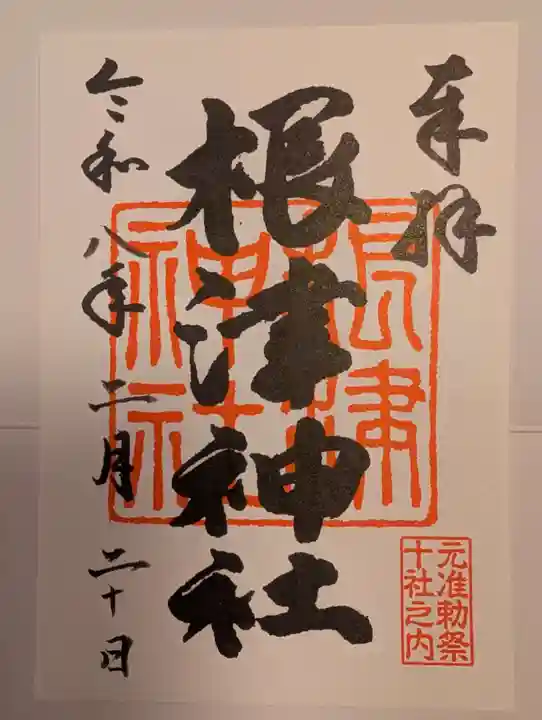 奉拝
根津神社
根津
神社
元准勅祭
十社之内
令和八年二月二十日